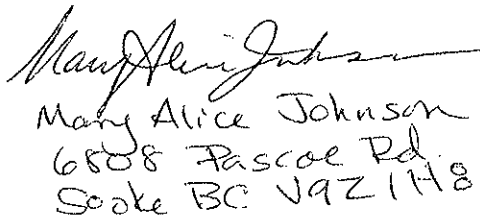 Mary Alice Johnson
Mary Alice Johnson
6808 Pascoe Rd.
Sooke BC V9Z 1H8